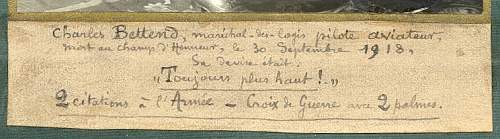 Charles Bettend, maréchal-des-logis pilote aviateur,
mort au champ d'Honneur, le 30 Septembre 1918.
Sa devise était.
"Toujours plus haut!"
2 citations à l'Armée – Croix de Guerre avec 2 palmes.